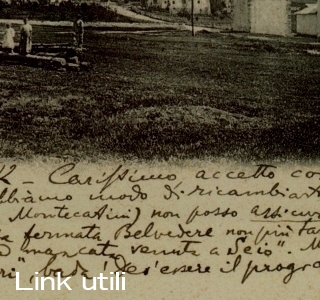 Carissimo accetto co
bbiamo modo di ricambiar
Montecatini) non posso assicu
fermata Belvedere non più ta
mancata venuta a Seio". M
" bada des'essere il progra
Link utili